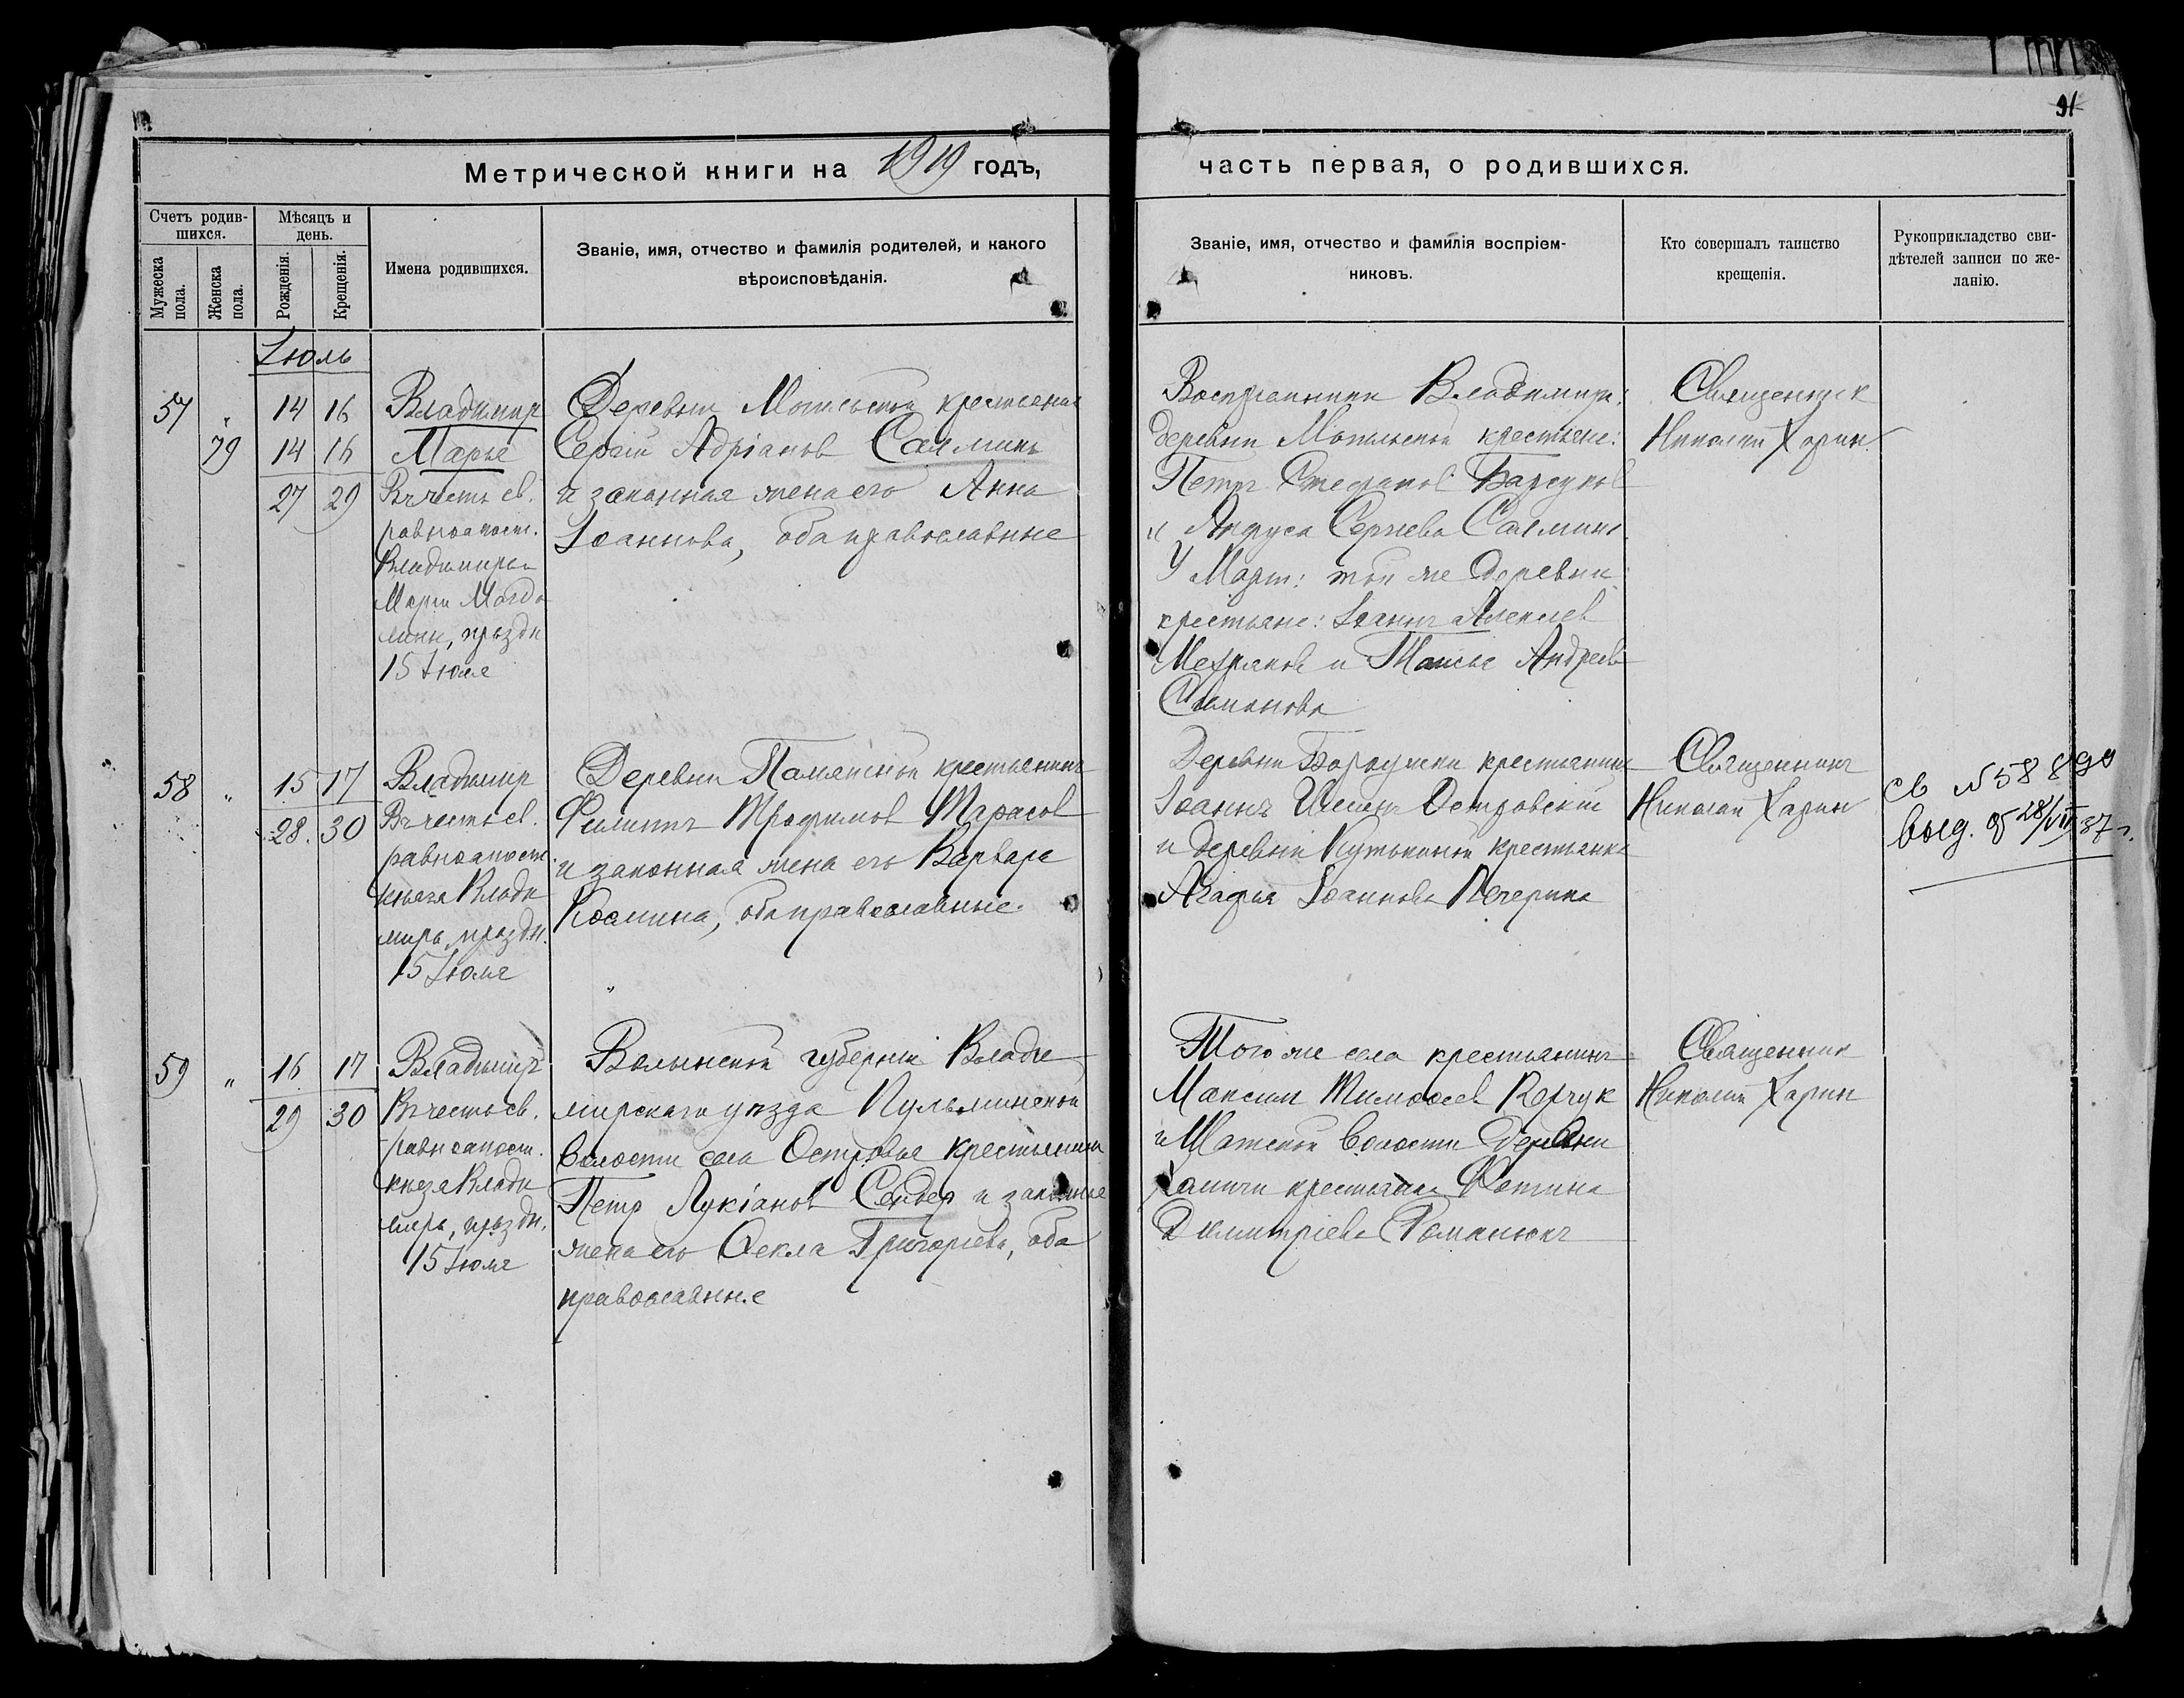 91
Метрической книги на 1919 годъ,
часть первая, о родившихся.
Счетъ родив-
шихся.
Мужеска
пола.
Женска
пола.
Мѣсяцъ и
день.
Рожденія.
Крещенія.
Имена родившихся.
Званіе, имя, отчество и фамилія родителей, и какого
вѣроисповѣданія.
Званіе, имя, отчество и фамилія воспріем-
никовъ.
Кто совершалъ таинство
крещенія.
Рукоприкладство сви-
дѣтелей записи по же-
ланію.
Іюль
57 " 14 16
79 14 16
27 29
Владимир
Марія
Въ честь св.
равноапост.
Владимира и
Маріи Магда
лины, праздн
15 Іюля
Деревни крестьянин
Сергій Адріанов Салминъ
и законная жена его Анна
Іоаннова, оба православные
Владимира:
деревни крестьяне:
Петръ Стефанов Барсуков
и Сергіева Салмина
У Маріи: той же деревни
крестьяне: Іоаннъ Алексѣев
Мехряков и Таисія Андреева
Симанова
Священник
Николай Харин
58 " 15 17
28. 30
Владимир
Въ честь св.
равноапост.
князя Влади
мира, праздн.
15 Іюля
Деревни крестьянинъ
Филиппъ Трофимов Тарасов
и законная жена его Варвара
Космина, оба православные.
Деревни крестьянин
Іоаннъ Островскій
и деревни крестьянка
Агафья Іоаннова Печерина
Священникъ
Николай Харин
св № 58
выд. 28/VII 37 г.
59 " 16 17
29 30
Владимиръ
Въ честь св.
равноапост.
князя Влади
мира, праздн.
15 Іюля
Волынской губерніи Влади
мирскаго уѣзда Пульминской
волости села Островья крестьянин
Петр Лукіанов Сендер и законная
жена его Ѳекла Григорьева, оба
православные
Того же села крестьянинъ
Максим Тимоѳеев Корчук
и Шатской волости деревни
крестьянка Фотина
Димитріева Романюкъ
Священник
Николай Харин